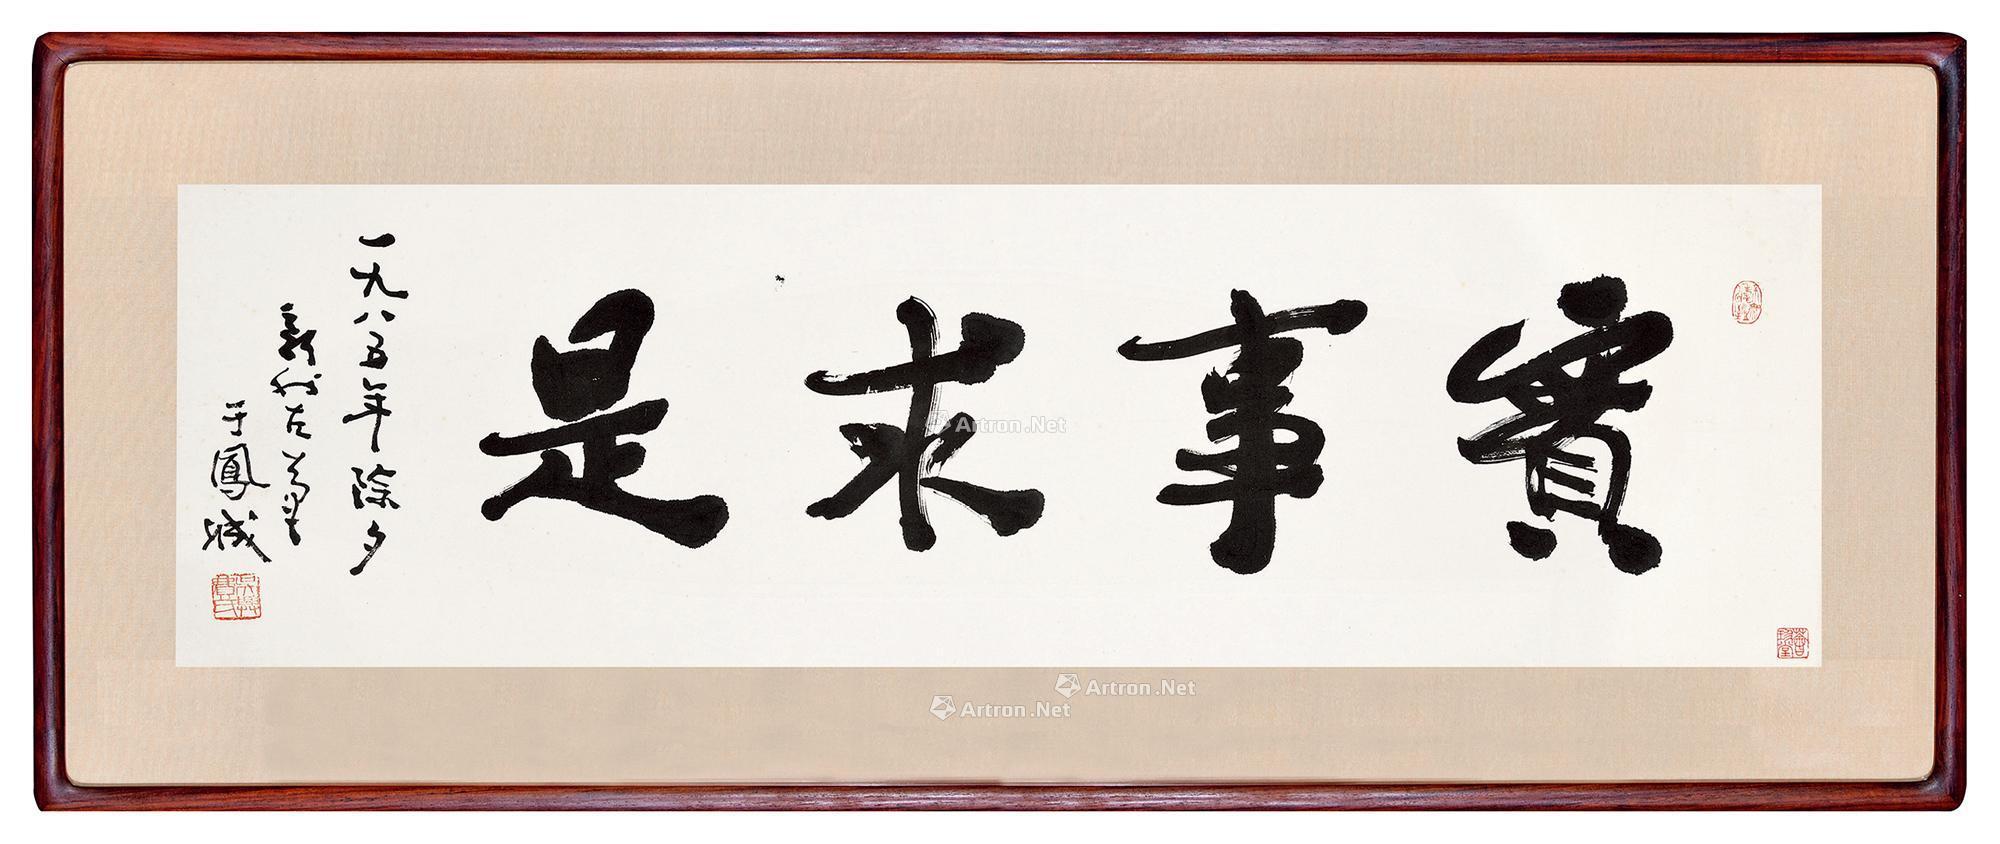 實事求是
一九八五年除夕
费新我左筆
于鳳城
Artron.Net
Artron.Net
Artron.Net